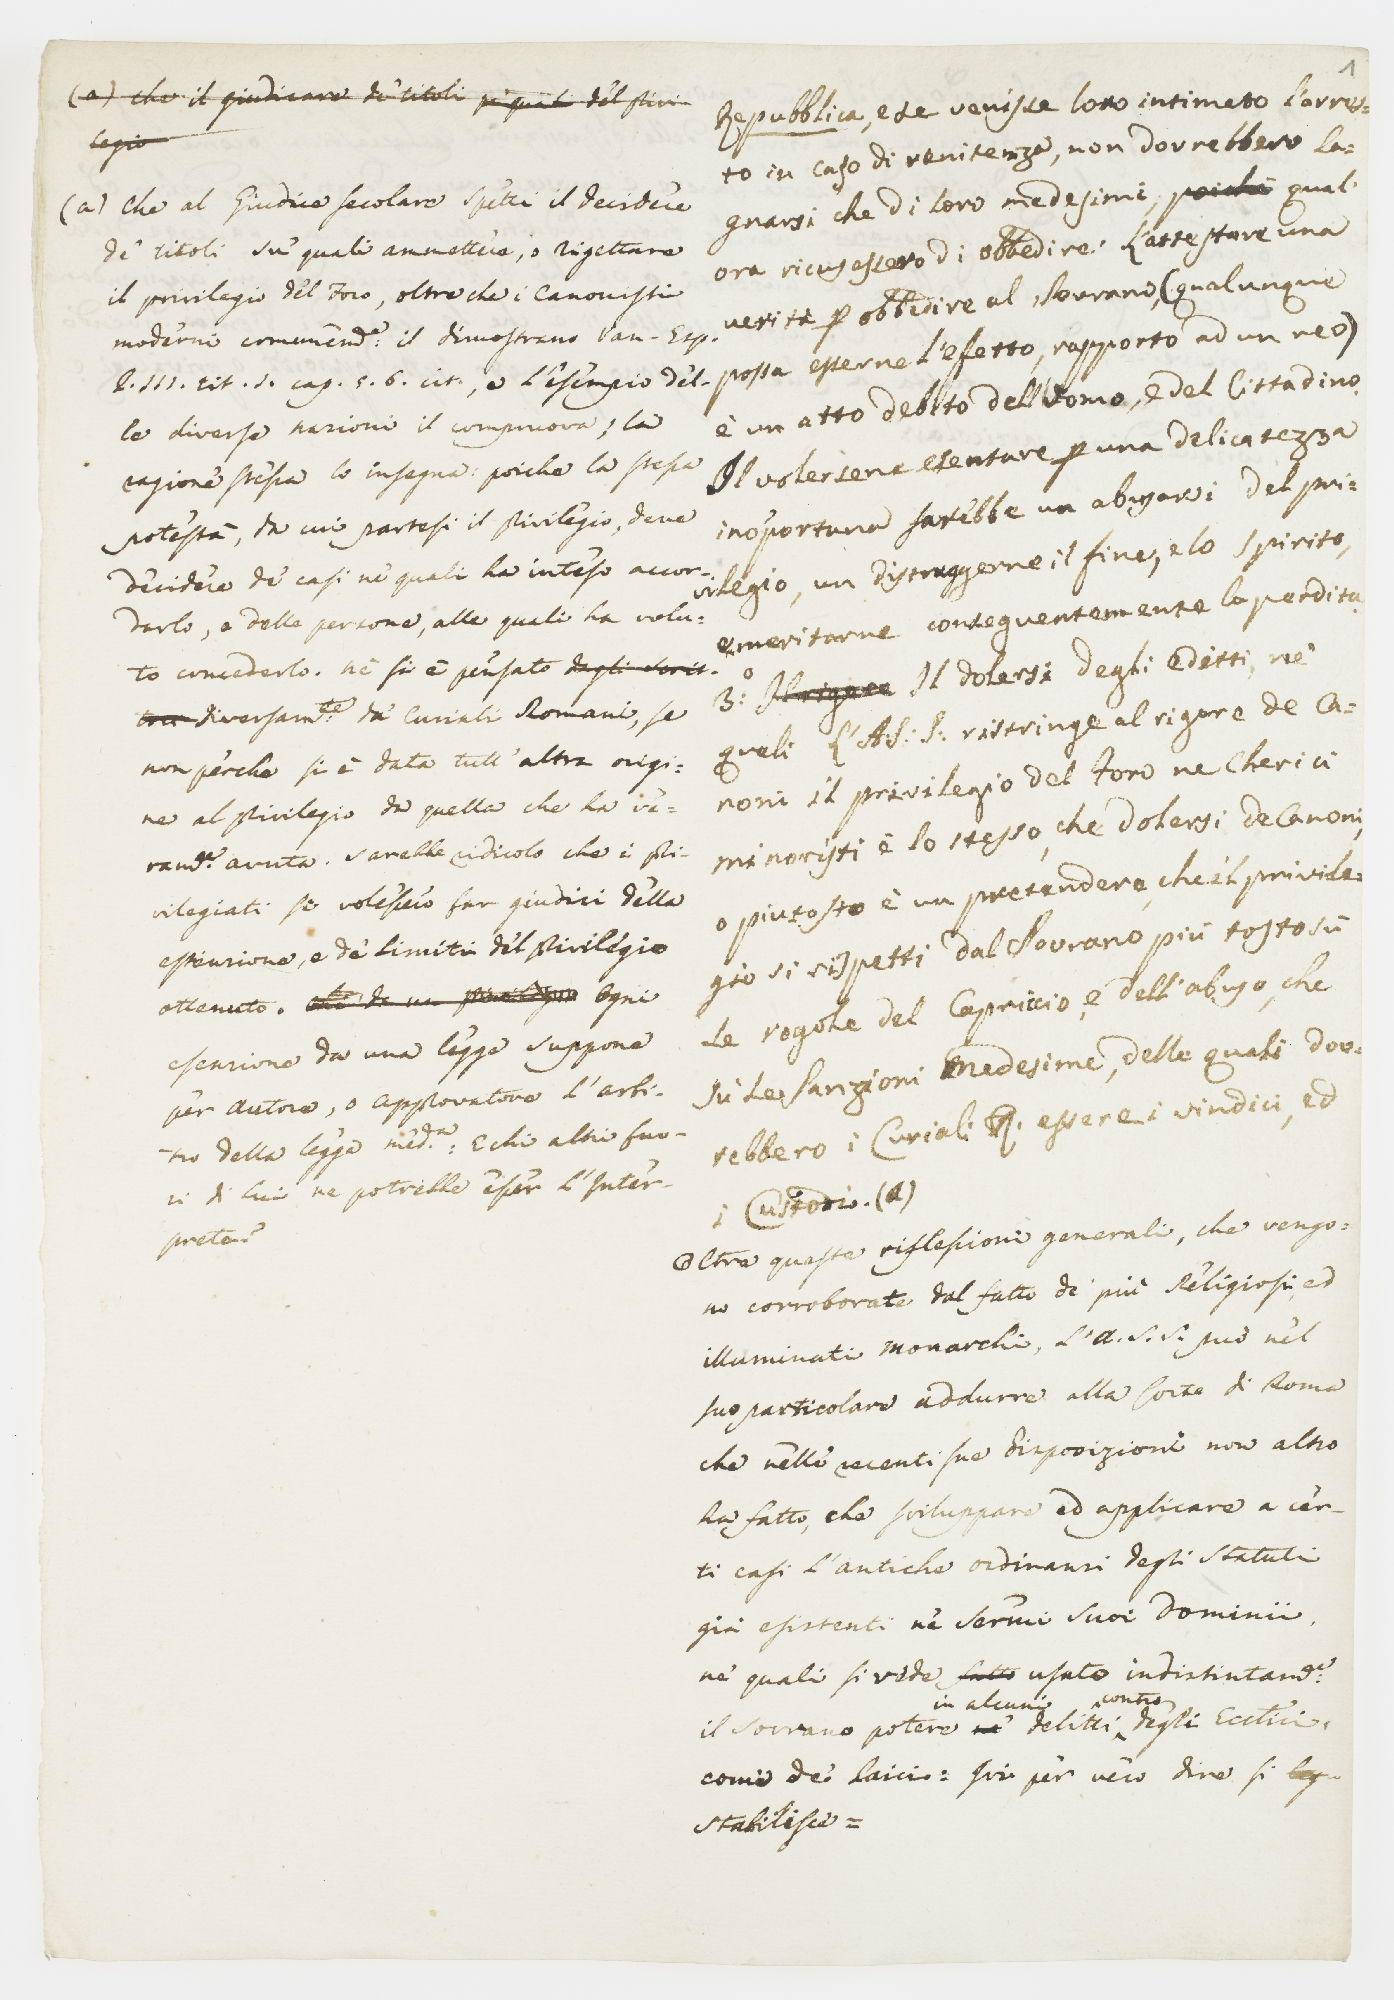 1
(a) che il giudicare de' titoli pe' quali del Privi-
legio
(a) Che al Giudice secolare spetti il decidere
de' titoli su' quali ammettere, o rigettare
il privilegio del Foro, oltre che i Canonisti
moderni comunem.e: il dimostrano Van-Esp.
P. III. tit. I. cap. 5. 6. cit., e l'esempio del-
le diverse nazioni il compruova; la
ragione stessa lo insegna: poiche la stessa
potestà, da cui partesi il Privilegio, deve
decidere de' casi ne' quali ha inteso accor-
darlo, e delle persone, alle quali ha volu-
to concederlo. Nè si è pensato dagli Scrit-
tori diversam.te da' Curiali Romani, se
non perche si è data tutt'altra origi-
ne al Privilegio da quella che ha ve-
ram.te avuta. Sarebbe ridicolo che i Pri-
vilegiati si volessero far giudici della
estensione, e de' limiti del Privilegio
ottenuto. che da un privilegio Ogni
esenzione da una legge suppone
per Autore, o approvatore l'arbi-
tro della legge med.ma: E chi altri fuo-
ri di lui ne potrebbe esser l'Inter-
prete?
Repubblica, e se venisse loro intimato l'arres-
to in caso di renitenza, non dovrebbero la-
gnarsi che di loro medesimi, poichè qual'
ora ricusassero di obbedire. L'attestare una
verità p obbedire al Sovrano, (qualunque
possa esserne l'efetto, rapporto ad un reo)
è un atto debito dell'Uomo, e del Cittadino.
Il volersene esentare p una delicatezza
inoportuna sarebbe un abusarsi del pri-
vilegio, un distruggerne il fine, e lo spirito,
e meritarne conseguentemente la perdita.
3.o Il rigore Il dolersi degli Editti, ne'
quali L'A.S.S. ristringe al rigore de Ca-
noni il privilegio del Foro ne Cherici
minoristi è lo stesso, che dolersi de Canoni,
o piutosto è un pretendere, che il privile-
gio si rispetti dal Sovrano più tosto sù
le regole del Capriccio, e dell'abuso, che
sù le Sanzioni medesime, delle quali dov-
rebbero i Curiali R. essere i vindici, ed
i Custodi. (a)
Oltre queste riflessioni generali, che vengo-
no corroborate dal fatto di più Religiosi, ed
illuminati Monarchi, L'A.S.S. può nel
suo particolare addurre alla Corte di Roma
che nelle recenti sue disposizioni non altro
ha fatto, che sviluppare ed applicare a cer-
ti casi l'antiche ordinanzi degli Statuti
già esistenti ne' Sermi Suoi Dominii,
ne' quali si vede fatto usato indistintam.e:
in alcuni contro
il Sovrano potere ne' delitti degli Ecclici,
come de' Laici: Ivi per vero dire si leg-
stabilisce=